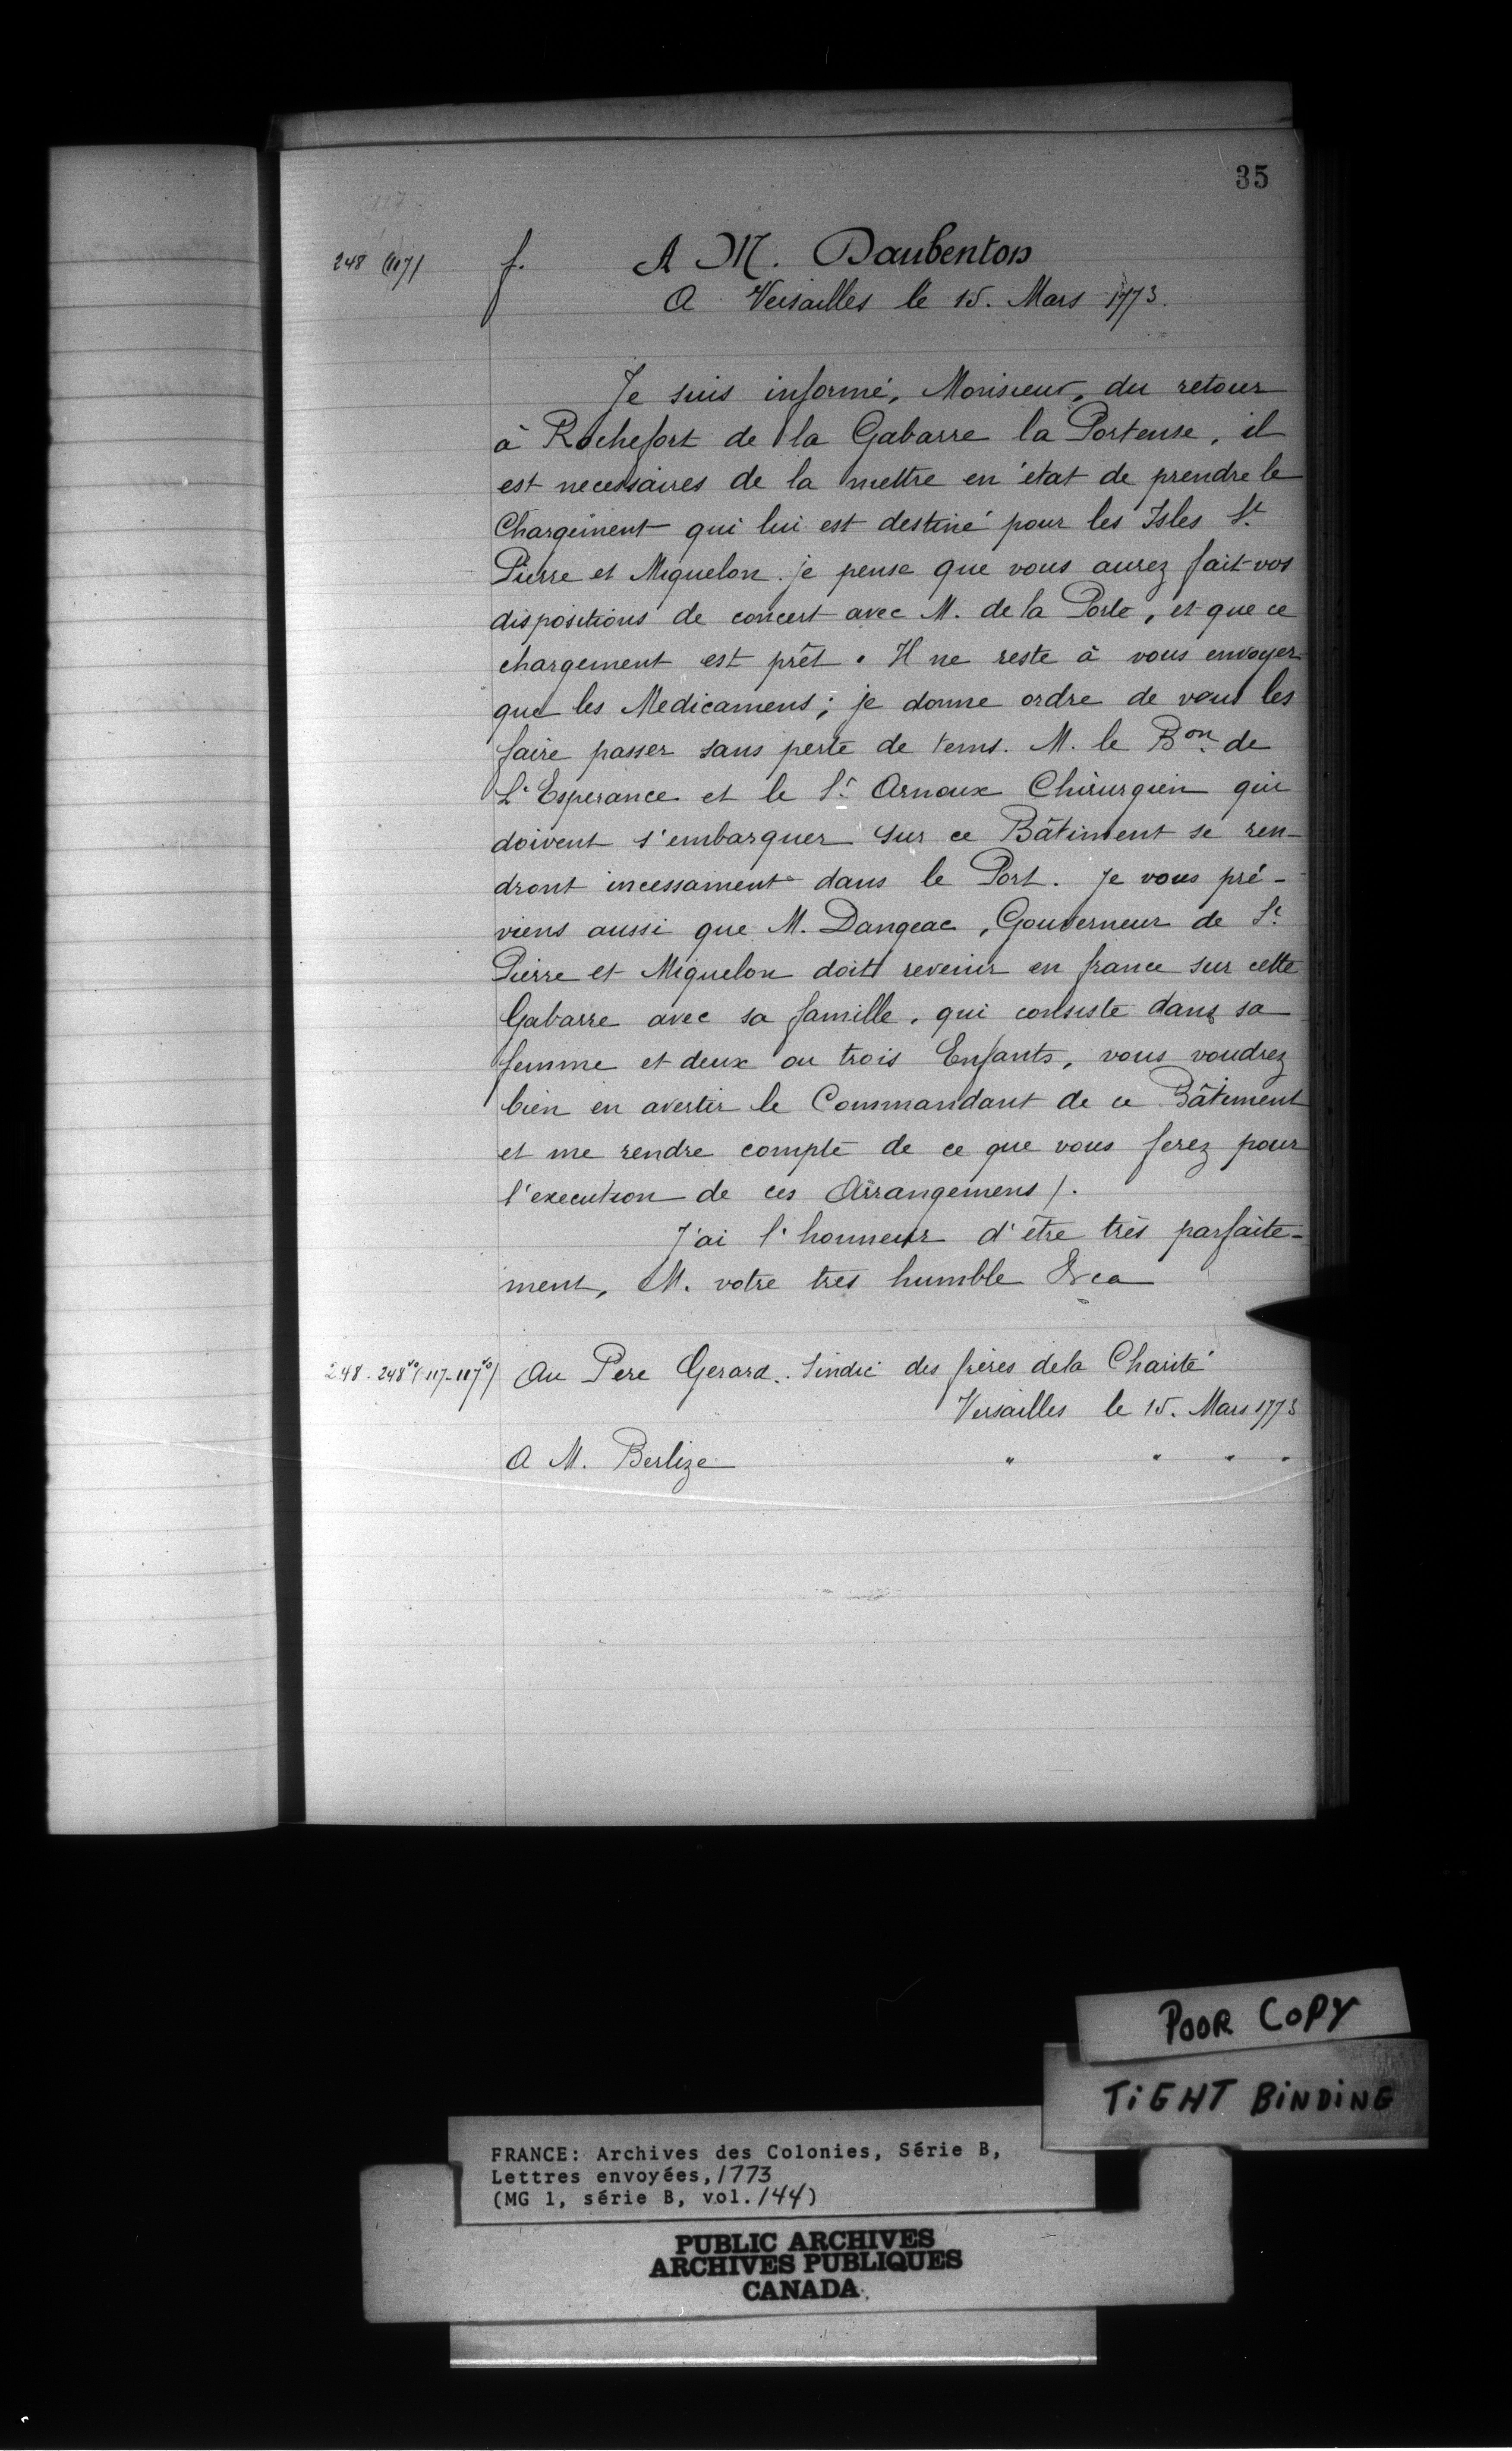 35
248 (117) f. A M. Daubenton
A Versailles le 15. Mars 1773.
Je suis informé, Monsieur, du retour
à Rochefort de la Gabarre la Porteuse, il
est necessaires de la mettre en état de prendre le
Chargement qui lui est destiné pour les Isles St.
Pierre et Miquelon. je pense que vous aurez fait vos
dispositions de concert avec M. de la Porte, et que ce
chargement est prêt. Il ne reste à vous envoyer
que les Medicamens; je donne ordre de vous les
faire passer sans perte de tems. M. le Bon. de
L'Esperance et le Sr. Arnoux Chirurgien qui
doivent s'embarquer sur ce Bâtiment se ren-
dront incessament dans le Port. Je vous pré-
viens aussi que M. Dangeac, Gouverneur de St.
Pierre et Miquelon doit revenir en france sur cette
Gabarre avec sa famille, qui consiste dans sa
femme et deux ou trois Enfants, vous voudrez
bien en avertir le Commandant de ce Bâtiment
et me rendre compte de ce que vous ferez pour
l'execution de ces Arrangemens /.
J'ai l'honneur d'être très parfaite-
ment, M. votre très humble &ca
248. 248vo (117-117vo) Au Pere Gerard. Sindic des frères dela Charité
Versailles le 15. Mars 1773
A M. Berlize " " " "
POOR COPY
TIGHT BINDING
FRANCE: Archives des Colonies, Série B,
Lettres envoyées, 1773
(MG 1, série B, vol. 144)
PUBLIC ARCHIVES
ARCHIVES PUBLIQUES
CANADA